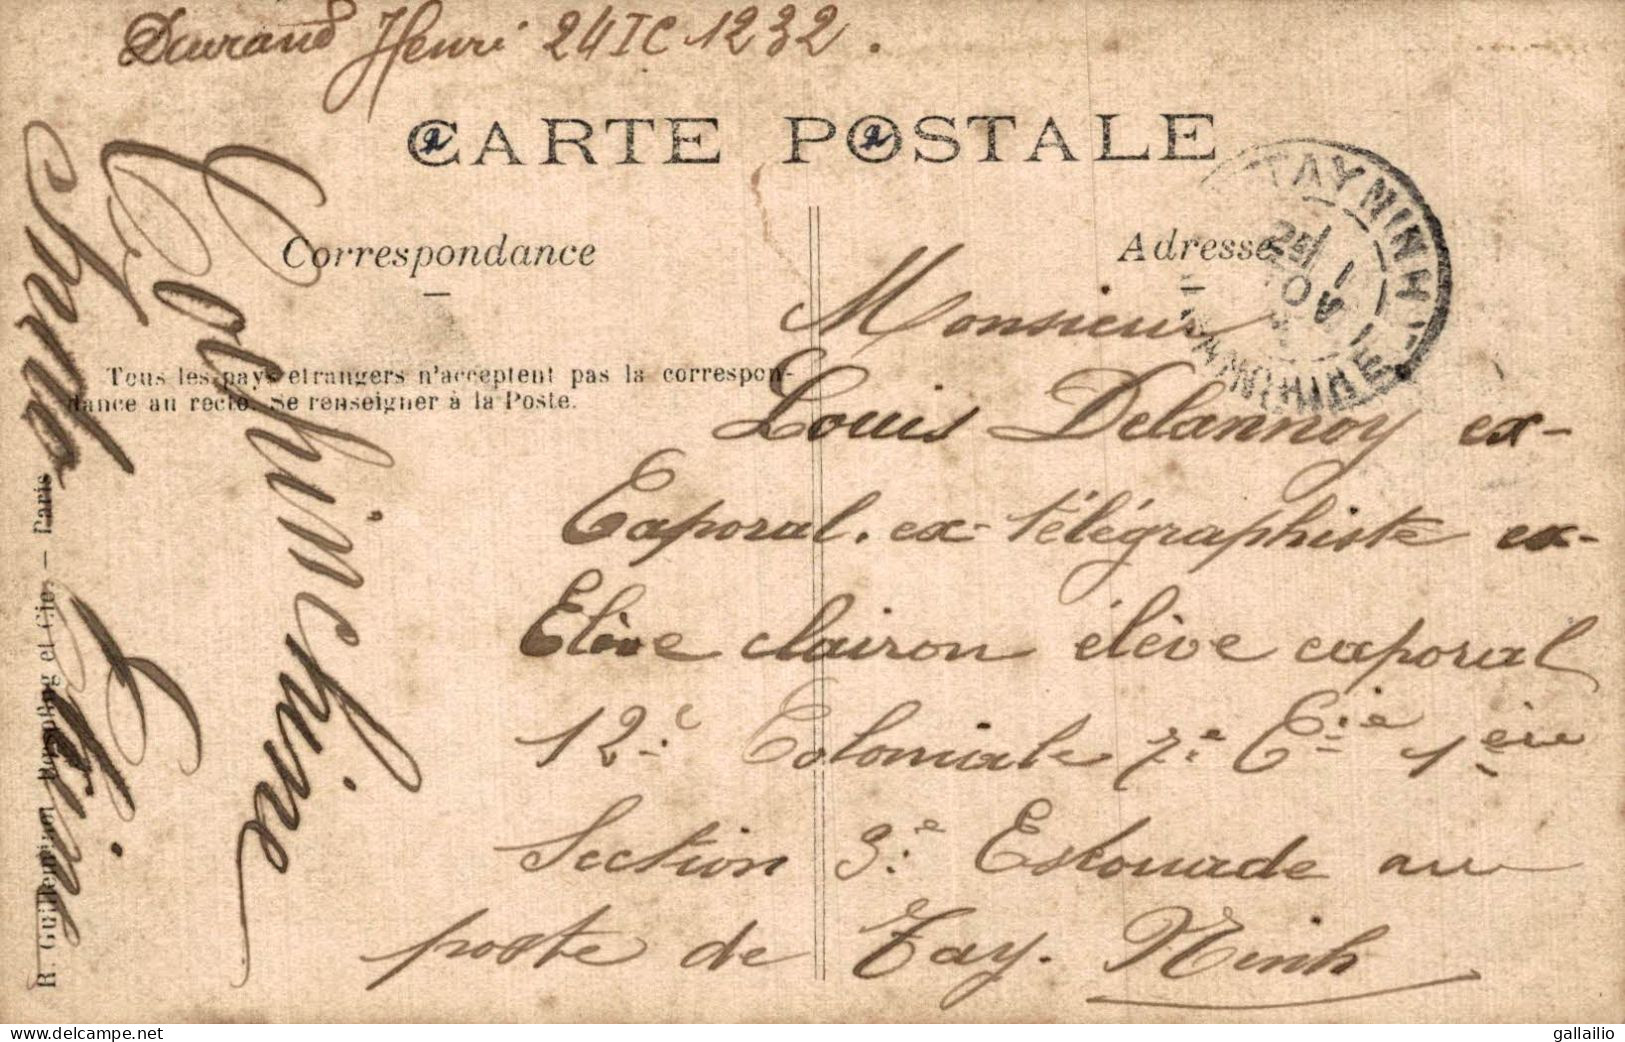 Durand Henri 24 IC 1232.
CARTE POSTALE
Correspondance
Adresse
TAYNINH
25
Tous les pays étrangers n'acceptent pas la correspon-
dance au recto. Se renseigner à la Poste.
Monsieur
Louis Delannoy ex-
Caporal. ex-télégraphiste ex-
Elève clairon élève caporal
12e Coloniale 7e Cie 1ère
Section 3e Escouade au
poste de Tay. Ninh
Cochinchine
Indo Chine
R. Guilleminot et Cie. — Paris
gallailio